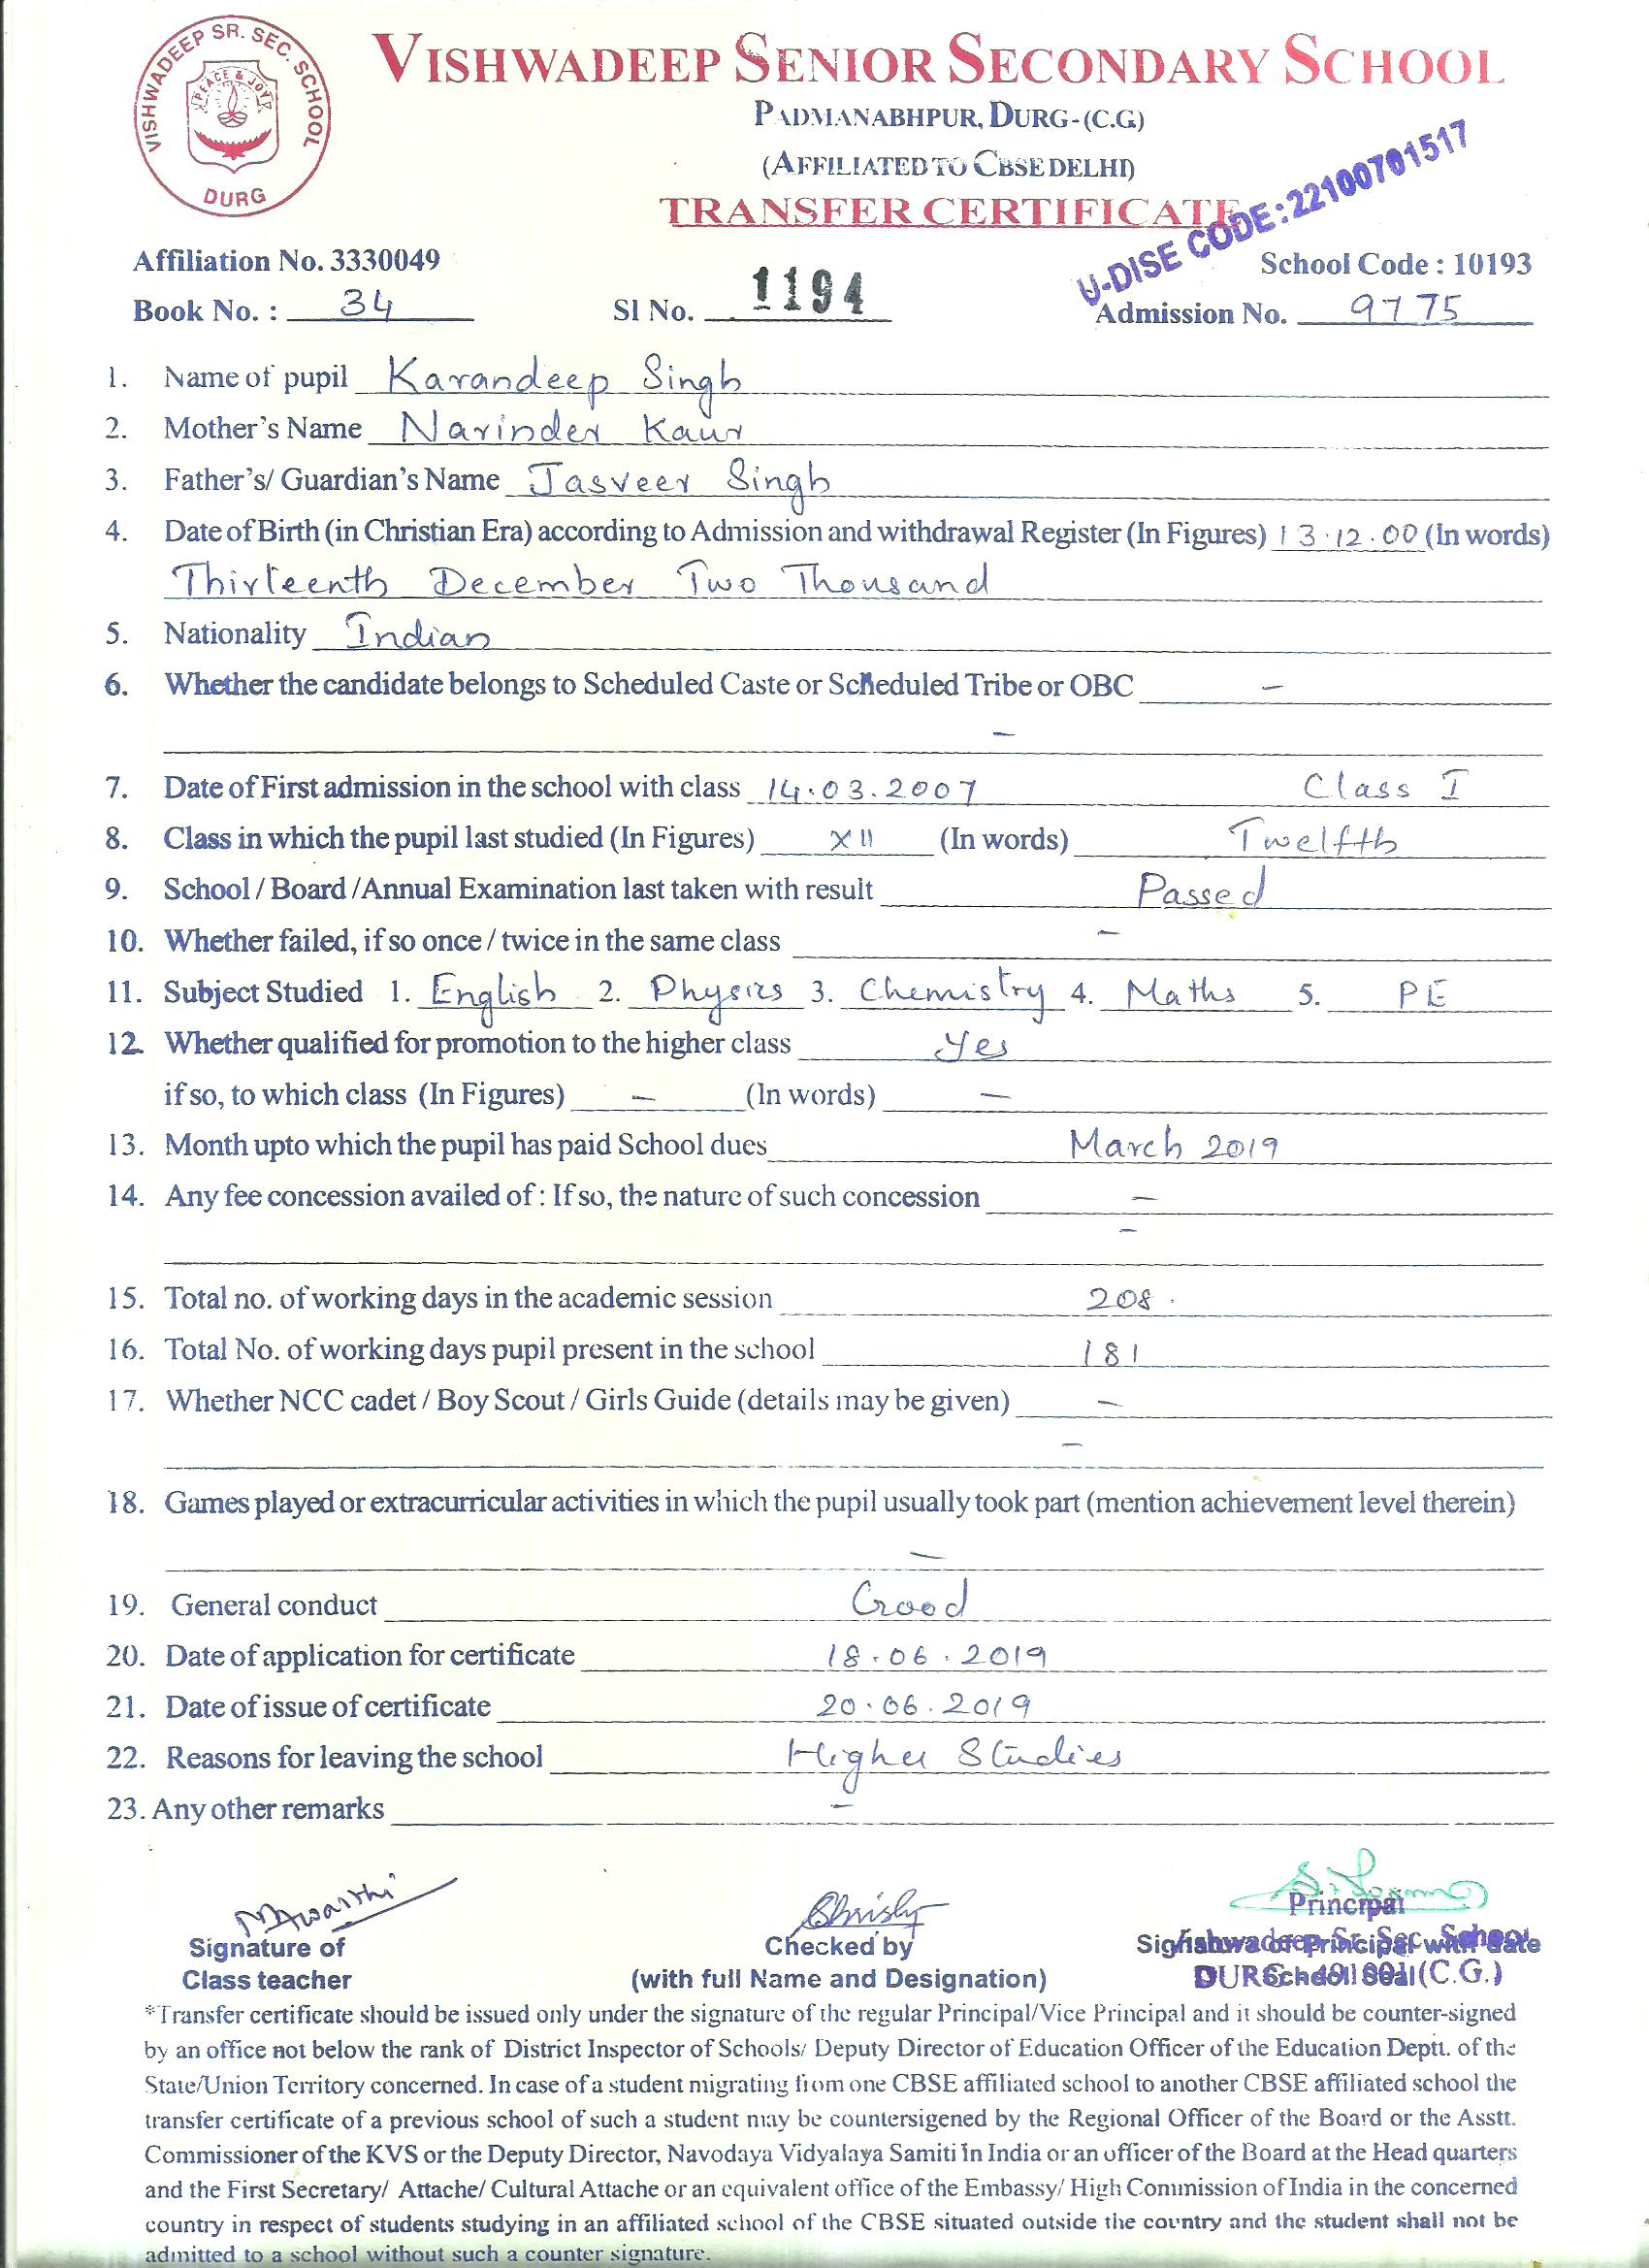 VISHWADEEP SR. SEC. SCHOOL
PEACE & JOY
DURG
VISHWADEEP SENIOR SECONDARY SCHOOL
PADMANABHPUR, DURG-(C.G)
(AFFILIATED TO CBSE DELHI)
TRANSFER CERTIFICATE
U-DISE CODE: 22100701517
Affiliation No. 3330049 School Code : 10193
Book No. : 34 Sl No. 1194 Admission No. 9775
1. Name of pupil Karandeep Singh
2. Mother's Name Narinder Kaur
3. Father's/ Guardian's Name Jasveer Singh
4. Date of Birth (in Christian Era) according to Admission and withdrawal Register (In Figures) 13.12.00 (In words)
Thirteenth December Two Thousand
5. Nationality Indian
6. Whether the candidate belongs to Scheduled Caste or Scheduled Tribe or OBC –
–
7. Date of First admission in the school with class 14.03.2007 Class I
8. Class in which the pupil last studied (In Figures) XII (In words) Twelfth
9. School / Board /Annual Examination last taken with result Passed
10. Whether failed, if so once / twice in the same class –
11. Subject Studied 1. English 2. Physics 3. Chemistry 4. Maths 5. PE
12. Whether qualified for promotion to the higher class Yes
if so, to which class (In Figures) – (In words) –
13. Month upto which the pupil has paid School dues March 2019
14. Any fee concession availed of : If so, the nature of such concession –
–
15. Total no. of working days in the academic session 208.
16. Total No. of working days pupil present in the school 181
17. Whether NCC cadet / Boy Scout / Girls Guide (details may be given) –
–
18. Games played or extracurricular activities in which the pupil usually took part (mention achievement level therein)
–
19. General conduct Good
20. Date of application for certificate 18.06.2019
21. Date of issue of certificate 20.06.2019
22. Reasons for leaving the school Higher Studies
23. Any other remarks –
Principal
Signature of Checked by Signature of Principal with date
Vishwadeep Sr. Sec. School
Class teacher (with full Name and Designation) School Seal
DURG 491001 (C.G.)
*Transfer certificate should be issued only under the signature of the regular Principal/Vice Principal and it should be counter-signed
by an office not below the rank of District Inspector of Schools/ Deputy Director of Education Officer of the Education Deptt. of the
State/Union Territory concerned. In case of a student migrating from one CBSE affiliated school to another CBSE affiliated school the
transfer certificate of a previous school of such a student may be countersigened by the Regional Officer of the Board or the Asstt.
Commissioner of the KVS or the Deputy Director, Navodaya Vidyalaya Samiti in India or an officer of the Board at the Head quarters
and the First Secretary/ Attache/ Cultural Attache or an equivalent office of the Embassy/ High Commission of India in the concerned
country in respect of students studying in an affiliated school of the CBSE situated outside the country and the student shall not be
admitted to a school without such a counter signature.